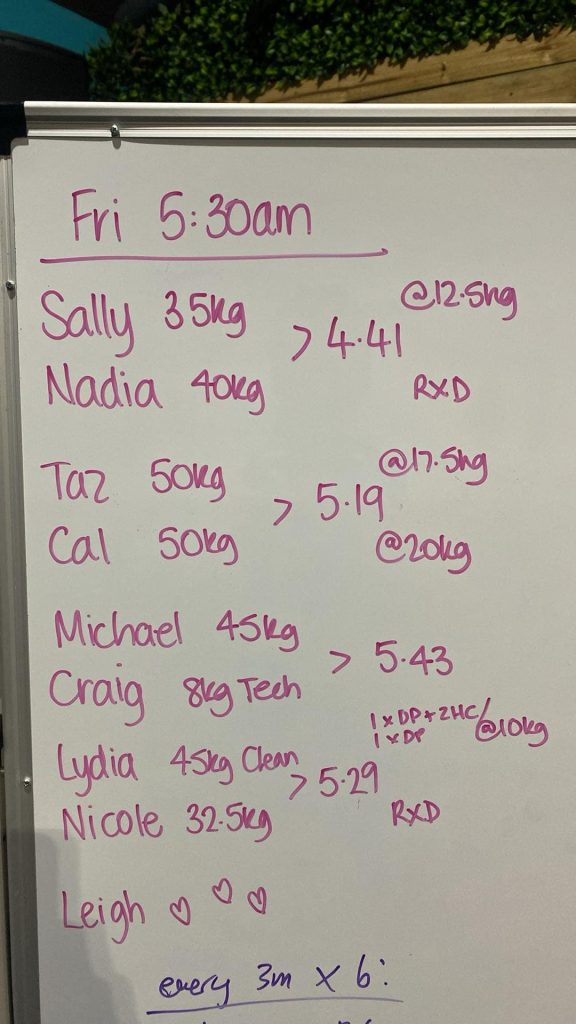 Fri 5:30am
Sally 35kg > 4.41 @12.5kg
Nadia 40kg RXD
Taz 50kg > 5.19 @17.5kg
Cal 50kg @20kg
Michael 45kg > 5.43
Craig 8kg Tech
1 x DP + 2HC/ @10kg
1 x DP
Lydia 45kg Clean > 5.29
Nicole 32.5kg RXD
Leigh ♡ ♡ ♡
every 3m x 6: